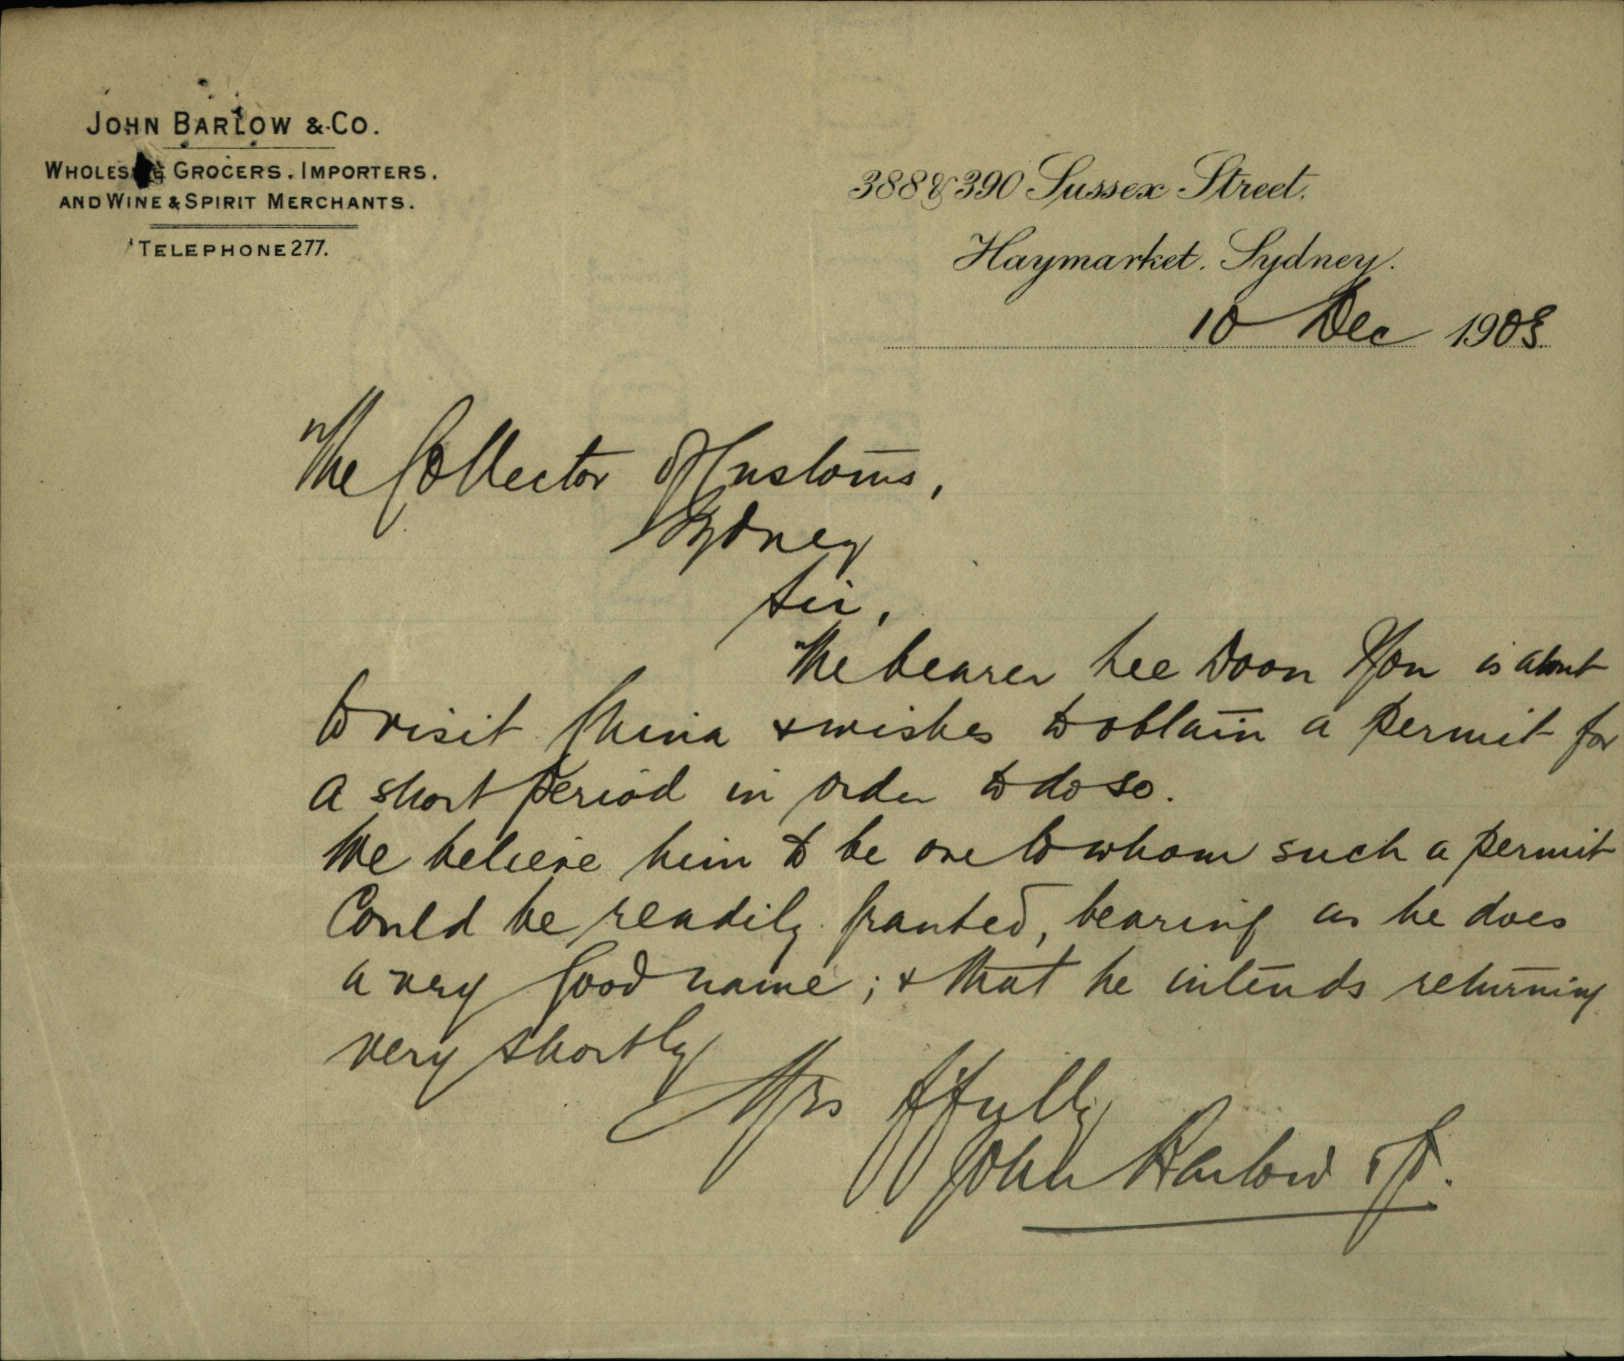 JOHN BARLOW & CO.
WHOLESALE GROCERS. IMPORTERS.
AND WINE & SPIRIT MERCHANTS.
TELEPHONE 277.
388 & 390 Sussex Street.
Haymarket. Sydney.
10 Dec 1903
The Collector of Customs,
Sydney
Sir,
The bearer Lee Doon Yon is about
to visit China & wishes to obtain a permit for
a short period in order to do so.
We believe him to be one to whom such a permit
Could be readily granted, bearing as he does
a very good name; & that he intends returning
very shortly
Yrs ffully
John Barlow & Co.